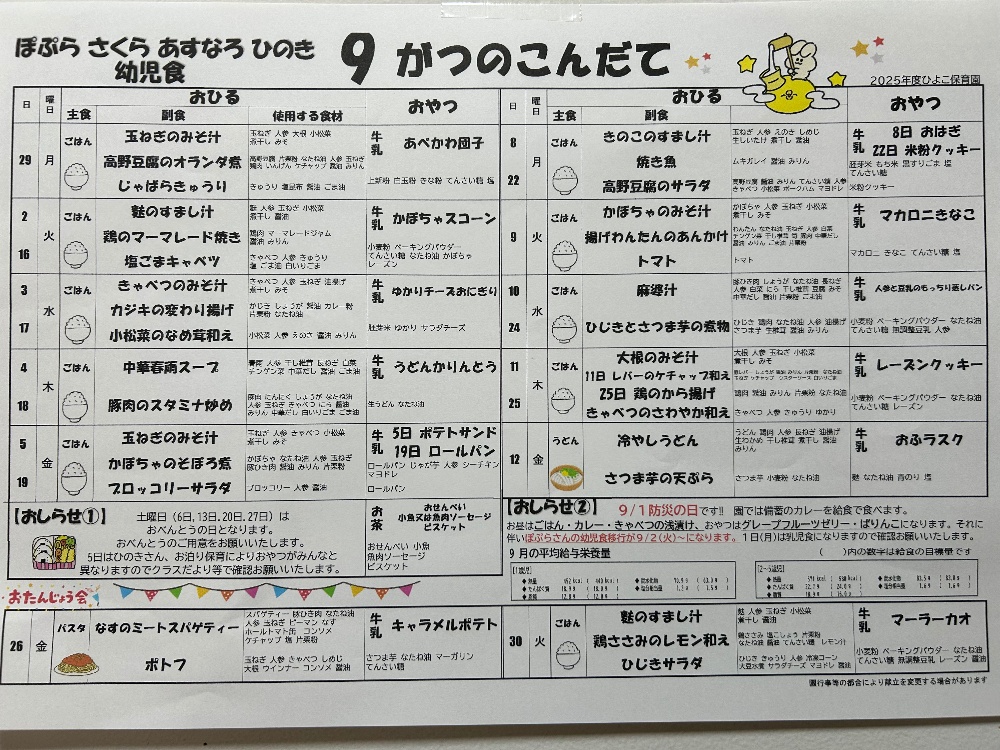 ぽぷら さくら あすなろ ひのき
幼児食
9 がつのこんだて
2025年度ひよこ保育園
日 曜日 おひる おやつ
主食 副食 使用する食材
29 月 ごはん
玉ねぎのみそ汁
玉ねぎ 人参 大根 小松菜
煮干し みそ
高野豆腐のオランダ煮
じゃばらきゅうり
きゅうり 塩昆布 醤油 ごま油
牛乳 あべかわ団子
上新粉 白玉粉 きな粉 てんさい糖 塩
2 火 16 ごはん
麩のすまし汁
麩 人参 玉ねぎ 小松菜
煮干し 醤油
鶏のマーマレード焼き
鶏肉 マーマレードジャム
醤油 みりん
塩ごまキャベツ
きゃべつ 人参 きゅうり
塩 ごま油 白いりごま
牛乳 かぼちゃスコーン
小麦粉 ベーキングパウダー
てんさい糖 なたね油 かぼちゃ
レーズン
3 水 17 ごはん
きゃべつのみそ汁
きゃべつ 人参 玉ねぎ 油揚げ
煮干し みそ
カジキの変わり揚げ
かじき しょうが 醤油 カレー粉
片栗粉 なたね油
小松菜のなめ茸和え
小松菜 人参 えのき 醤油 みりん
牛乳 ゆかりチーズおにぎり
胚芽米 ゆかり サラダチーズ
4 木 18 ごはん
中華春雨スープ
春雨 人参 干し椎茸 長ねぎ 白菜
チンゲン菜 中華だし 醤油 ごま油
豚肉のスタミナ炒め
豚肉 にんにく しょうが なたね油
人参 玉ねぎ きゃべつ にら 醤油
みりん 中華だし 白いりごま ごま油
牛乳 うどんかりんとう
生うどん なたね油
5 金 19 ごはん
玉ねぎのみそ汁
玉ねぎ 人参 きゃべつ 小松菜
煮干し みそ
かぼちゃのそぼろ煮
かぼちゃ なたね油 人参 玉ねぎ
豚ひき肉 醤油 みりん 片栗粉
ブロッコリーサラダ
ブロッコリー 人参 醤油
牛乳 5日 ポテトサンド
19日 ロールパン
ロールパン じゃが芋 人参 シーチキン
マヨドレ
ロールパン
【おしらせ①】
土曜日(6日,13日,20日、27日)は
おべんとうの日となります。
おべんとうのご用意をお願いいたします。
5日はひのきさん、お泊り保育によりおやつがみんなと
異なりますのでクラスだより等で確認お願いいたします。
お茶
おせんべい
小魚又は魚肉ソーセージ
ビスケット
おせんべい 小魚
魚肉ソーセージ
ビスケット
おたんじょう会
26 金 パスタ
なすのミートスパゲティー
スパゲティー 豚ひき肉 なたね油
人参 玉ねぎ ピーマン なす
ホールトマト缶 コンソメ
ケチャップ 塩 片栗粉
ポトフ
玉ねぎ 人参 きゃべつ しめじ
大根 ウインナー コンソメ 醤油
牛乳 キャラメルポテト
さつま芋 なたね油 マーガリン
てんさい糖
日 曜日 おひる おやつ
主食 副食
8 月 22 ごはん
きのこのすまし汁
玉ねぎ 人参 えのき しめじ
生しいたけ 煮干し 醤油
焼き魚
ムキガレイ 醤油 みりん
高野豆腐のサラダ
牛乳 8日 おはぎ
22日 米粉クッキー
胚芽米 もち米 黒すりごま 塩
てんさい糖
米粉クッキー
9 火 ごはん
かぼちゃのみそ汁
かぼちゃ 人参 玉ねぎ 小松菜
煮干し みそ
揚げわんたんのあんかけ
トマト
トマト
牛乳 マカロニきなこ
マカロニ きなこ てんさい糖 塩
10 水 24 ごはん
麻婆汁
ひじきとさつま芋の煮物
ひじき 鶏肉 なたね油 人参 油揚げ
さつま芋 生椎茸 醤油 みりん
牛乳 人参と豆乳のもっちり蒸しパン
小麦粉 ベーキングパウダー なたね油
てんさい糖 無調整豆乳 人参
11 木 25 ごはん
大根のみそ汁
大根 人参 玉ねぎ 小松菜
煮干し みそ
11日 レバーのケチャップ和え
25日 鶏のから揚げ
鶏肉 醤油 みりん 片栗粉 なたね油
きゃべつのさわやか和え
きゃべつ 人参 きゅうり ゆかり
牛乳 レーズンクッキー
小麦粉 ベーキングパウダー なたね油
てんさい糖 レーズン
12 金 うどん
冷やしうどん
うどん 鶏肉 人参 長ねぎ 油揚げ
生わかめ 干し椎茸 煮干し 醤油
みりん
さつま芋の天ぷら
さつま芋 小麦粉 なたね油
牛乳 おふラスク
麩 なたね油 青のり 塩
【おしらせ②】
9/1防災の日です!! 園では備蓄のカレーを給食で食べます。
お昼はごはん・カレー・きゃべつの浅漬け、おやつはグレープフルーツゼリー・ぱりんこになります。それに
伴いぽぷらさんの幼児食移行が9/2(火)~になります。1日(月)は乳児食になりますので確認お願いいたします。
9 月の平均給与栄養量
( )内の数字は給食の目標量です
30 火 ごはん
麩のすまし汁
麩 人参 玉ねぎ 小松菜
煮干し 醤油
鶏ささみのレモン和え
鶏ささみ 塩こしょう 片栗粉
なたね油 醤油 てんさい糖 レモン汁
ひじきサラダ
ひじき きゅうり 人参 冷凍コーン
大豆水煮 サラダチーズ マヨドレ 醤油
牛乳 マーラーカオ
小麦粉 ベーキングパウダー なたね油
てんさい糖 無調整豆乳 レーズン 醤油
園行事等の都合により献立を変更する場合があります